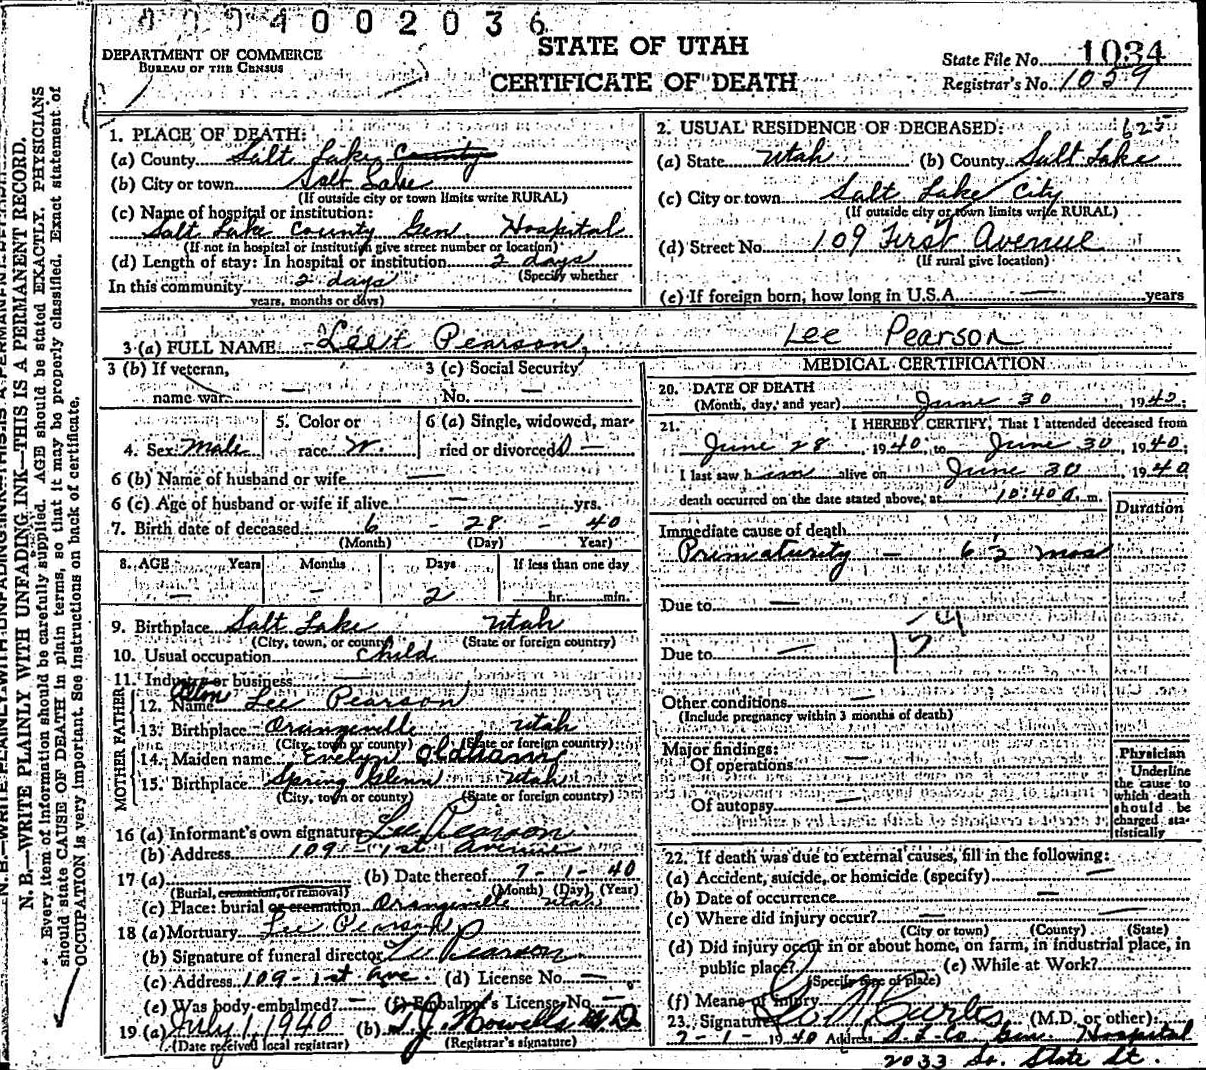 0 0 9 4 0 0 2 0 3 6
DEPARTMENT OF COMMERCE
BUREAU OF THE CENSUS
STATE OF UTAH
CERTIFICATE OF DEATH
State File No. 1034
Registrar's No. 1059
N. B.—WRITE PLAINLY WITH UNFADING INK—THIS IS A PERMANENT RECORD.
Every item of information should be carefully supplied. AGE should be stated EXACTLY. PHYSICIANS
should state CAUSE OF DEATH in plain terms, so that it may be properly classified. Exact statement of
OCCUPATION is very important. See instructions on back of certificate.
1. PLACE OF DEATH:
(a) County Salt Lake County
(b) City or town Salt Lake
(If outside city or town limits write RURAL)
(c) Name of hospital or institution:
Salt Lake County Gen. Hospital
(If not in hospital or institution give street number or location)
(d) Length of stay: In hospital or institution 2 days
(Specify whether
In this community 2 days
years, months or days)
2. USUAL RESIDENCE OF DECEASED: 625
(a) State Utah (b) County Salt Lake
(c) City or town Salt Lake City
(If outside city or town limits write RURAL)
(d) Street No. 109 First Avenue
(If rural give location)
(e) If foreign born, how long in U.S.A. — years
3 (a) FULL NAME Pearson Lee Pearson
3 (b) If veteran,
name war —
3 (c) Social Security
No. —
4. Sex Male
5. Color or
race W.
6 (a) Single, widowed, mar-
ried or divorced —
6 (b) Name of husband or wife —
6 (c) Age of husband or wife if alive — yrs.
7. Birth date of deceased 6 - 28 - 40
(Month) (Day) Year)
8. AGE Years Months Days If less than one day
— — 2 hr. min.
9. Birthplace Salt Lake Utah
(City, town, or county) (State or foreign country)
10. Usual occupation Child
11. Industry or business —
FATHER
12. Name Alton Lee Pearson
13. Birthplace Orangeville Utah
(City, town or county) (State or foreign country)
MOTHER
14. Maiden name Evelyn Oldham
15. Birthplace Spring Glenn Utah
(City, town or county) (State or foreign country)
16 (a) Informant's own signature Lee Pearson
(b) Address 109 - 1st Avenue
17 (a) (b) Date thereof 7 - 1 - 40
(Burial, cremation, or removal) (Month) (Day) (Year)
(c) Place: burial or cremation Orangeville Utah
18 (a) Mortuary Lee Pearson
(b) Signature of funeral director Lee Pearson
(c) Address 109 - 1st Ave. (d) License No. —
(e) Was body embalmed? — (f) Embalmer's License No. —
19 (a) July 1, 1940 (b) T. J. Howells M.D.
(Date received local registrar) (Registrar's signature)
MEDICAL CERTIFICATION
20. DATE OF DEATH
(Month, day, and year) June 30 1940.
21. I HEREBY CERTIFY, That I attended deceased from
June 28, 1940, to June 30, 1940.
I last saw him alive on June 30 1940
death occurred on the date stated above, at 10:40 a. m.
Duration
Immediate cause of death
Prematurity — 6 1/2 mos
Due to —
Due to —
Other conditions —
(Include pregnancy within 3 months of death)
Major findings:
Of operations —
Of autopsy —
Physician
Underline
the cause to
which death
should be
charged sta-
tistically
22. If death was due to external causes, fill in the following:
(a) Accident, suicide, or homicide (specify) —
(b) Date of occurrence —
(c) Where did injury occur? — —
(City or town) (County) (State)
(d) Did injury occur in or about home, on farm, in industrial place, in
public place? (e) While at Work?
(Specify type of place)
(f) Means of Injury
23. Signature Curtis (M.D. or other)
7 - 1 - 1940 Address S. L. Co. Gen. Hospital
2033 So. State St.